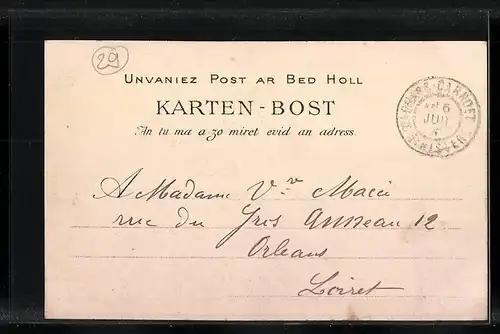 20
UNVANIEZ POST AR BED HOLL
KARTEN-BOST
An tu ma a zo miret evid an adress.
CARHAIX
6
JUIL
FINISTÈRE
A Madame Vve Macé
rue du Gros Anneau 12
Orléans
Loiret